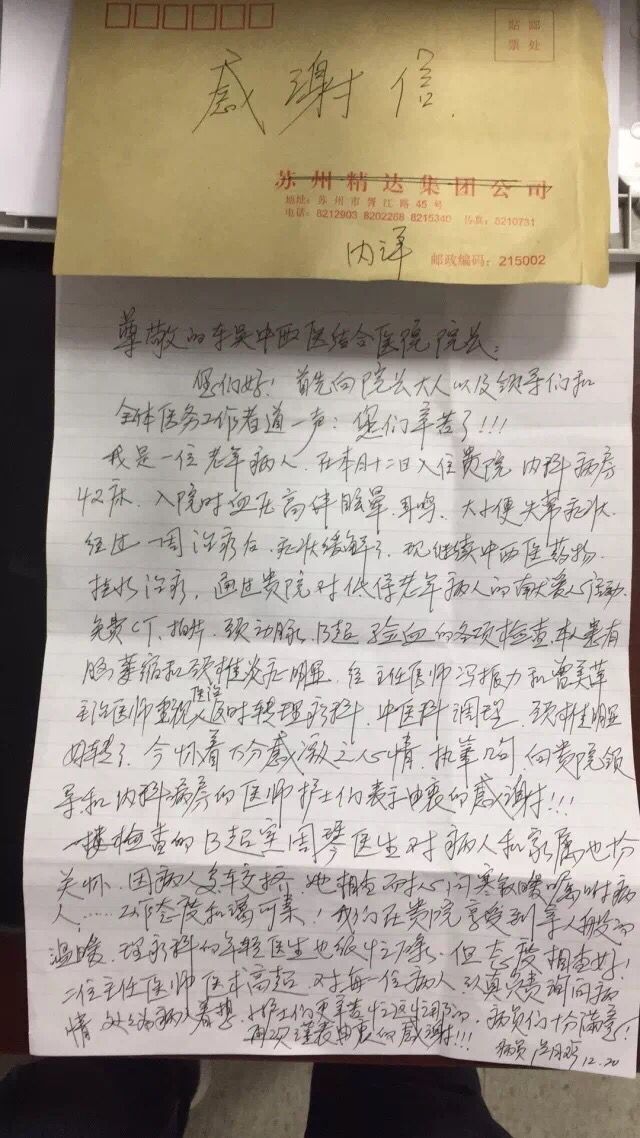 贴邮
票处
感谢信.
苏州精达集团公司
地址：苏州市胥江路 45 号
电话：8212903 8202268 8215340 传真：5210731
内详
邮政编码：215002
尊敬的东吴中西医结合医院院长：
您们好！首先向院长大人以及领导们和
全体医务工作者道一声：您们辛苦了!!!
我是一位老年病人，在本月十二日入住贵院内科病房
42床，入院时血压高伴眩晕、耳鸣、大小便失常症状
经过一周治疗后，症状缓解了，现继续中西医药物、
挂水治疗，通过贵院对低保老年病人的献爱心活动、
免费CT、拍片、颈动脉、B超、验血的各项检查，本人患有
脑萎缩和颈椎炎症明显，经主任医师冯振力和曾美萍
主治医师重视医治及时转理疗科、中医科调理，颈椎明显
好转了，今怀着万分感激之心情，执笔几句向贵院领
导和内科病房的医师护士们表示由衷的感谢!!!
一楼检查的B超室周琴医生对病人和家属也十分
关怀，因病人多车交挤，她相当耐心问寒虚暖嘱咐病
人……工作态度和蔼可亲！我们在贵院享受到亲人般的
温暖，理疗科的年轻医生也很忙碌，但态度相当好！
二位主任医师医术高超，对每一位病人认真负责询问病
情处处为病人着想，护士们更辛苦忙这忙那的，病员们十分满意！
再次谨表由衷的感谢!!!
病员 12.20